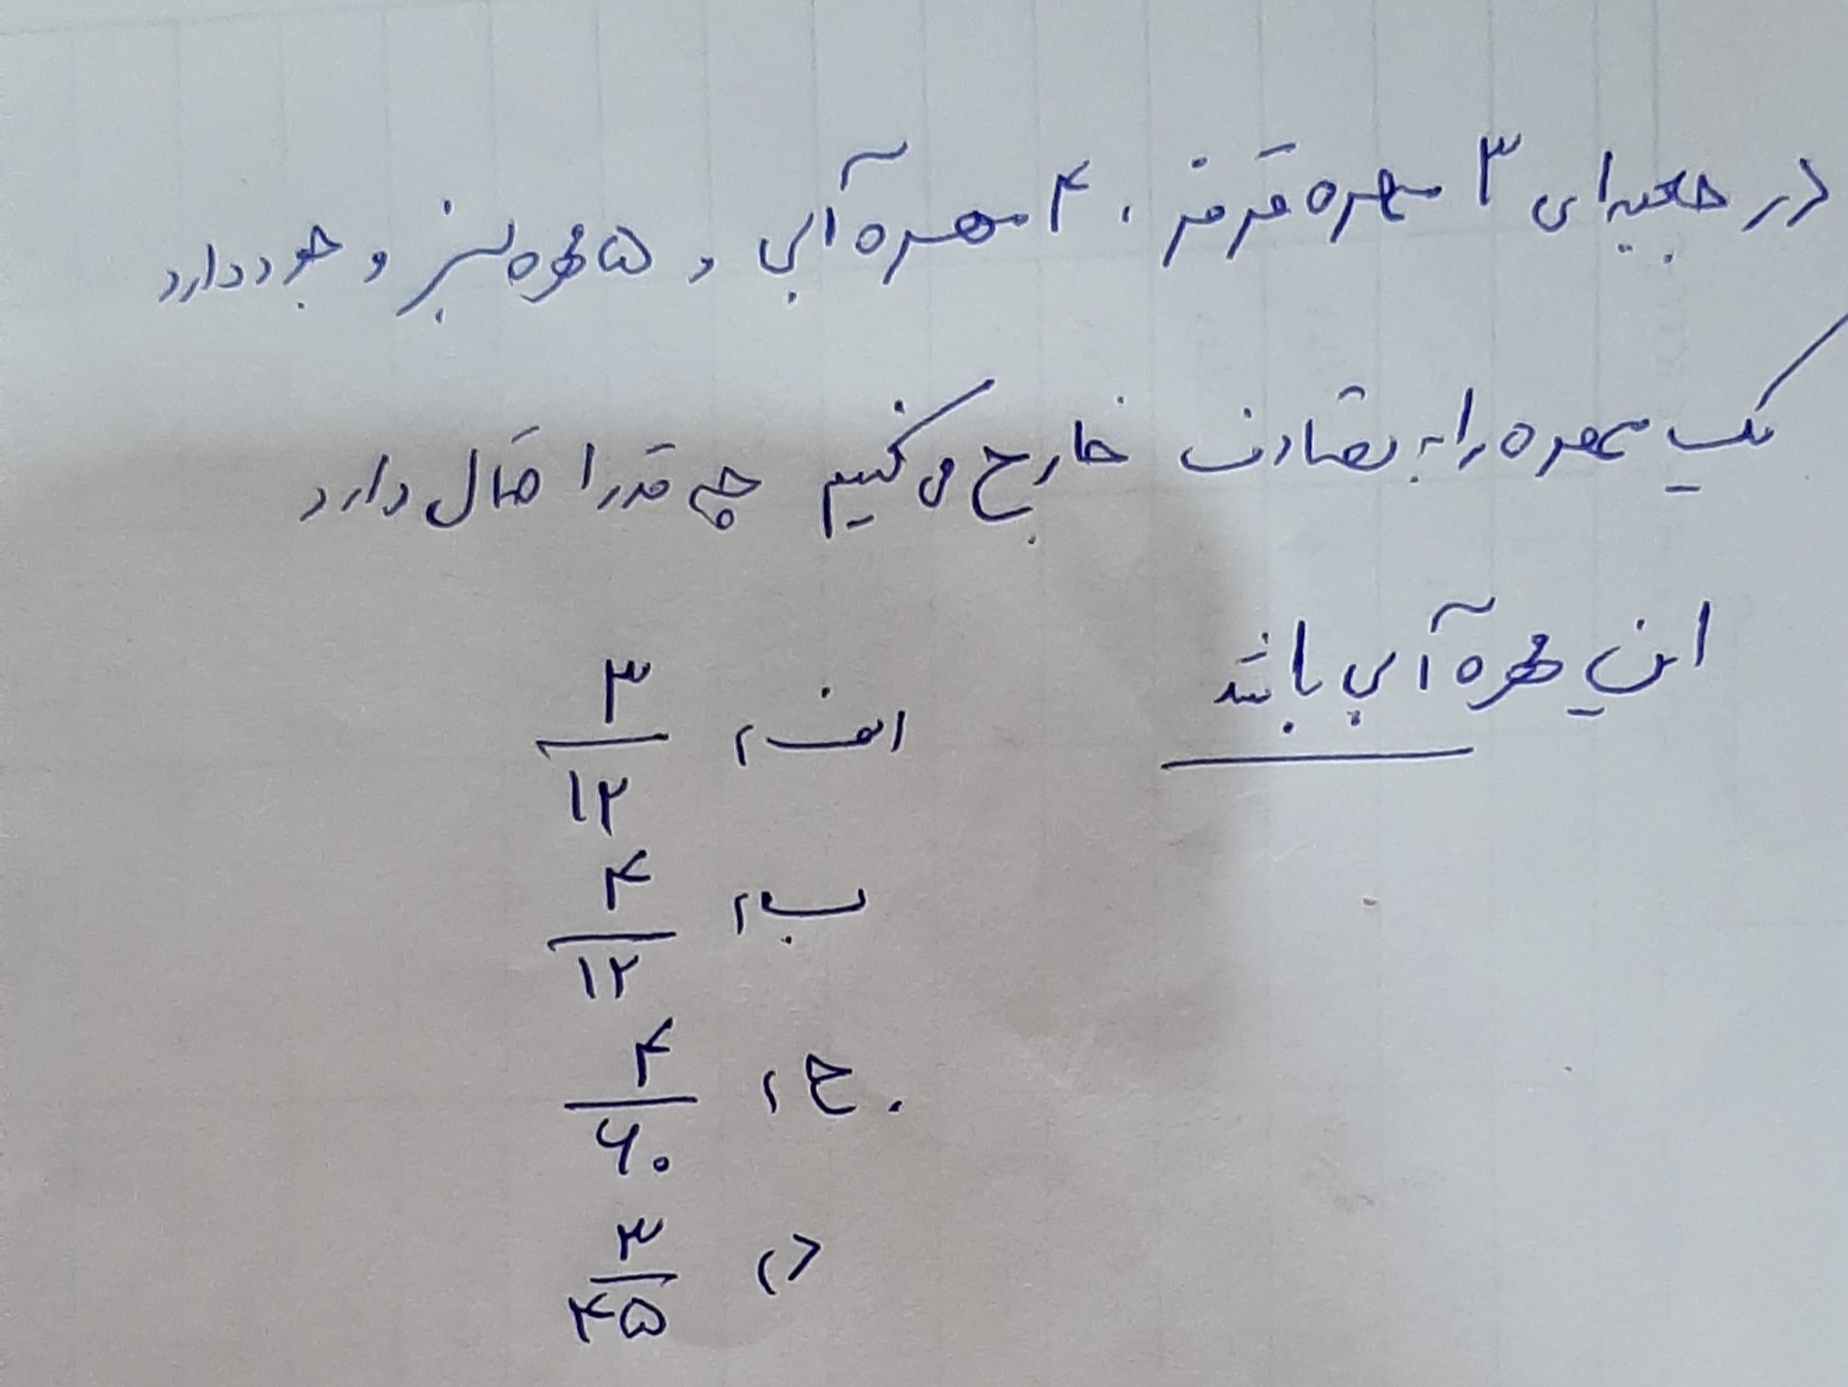 در جعبه ای ۳ مهره قرمز ، ۴ مهره آبی و ۵ مهره سبز وجود دارد
یک مهره را به تصادف خارج می کنیم چه قدر احتمال دارد
این مهره آبی باشد
الف) ۳/۱۲
ب) ۴/۱۲
ج) ۴/۶۰
د) ۳/۴۵